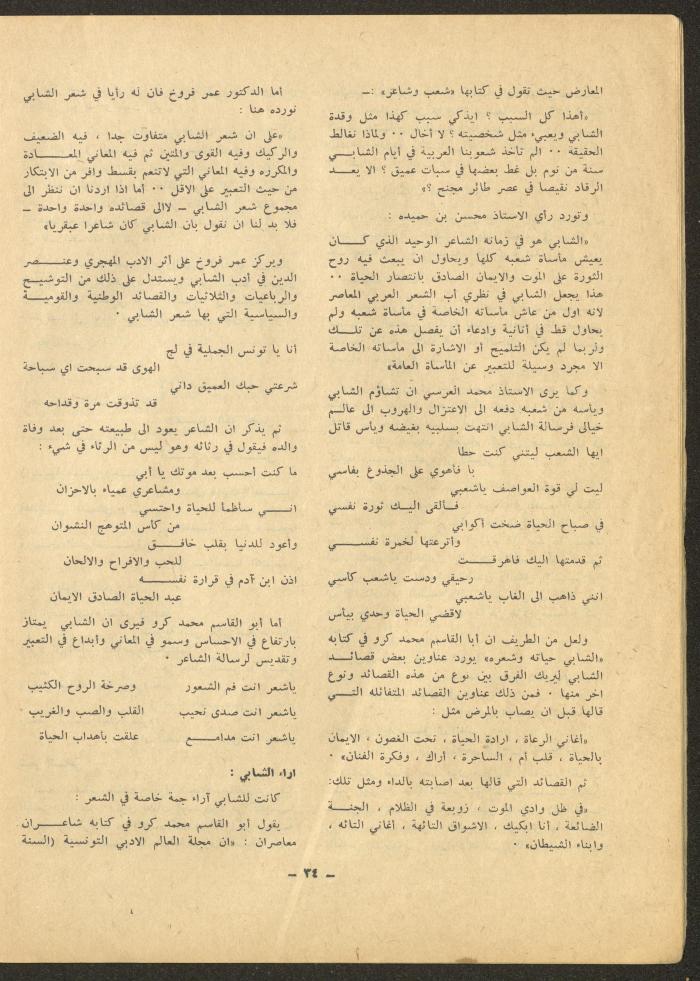 المعارض حيث تقول في كتابها «شعب وشاعر» :ـ
«أهذا كل السبب ؟ ايذكي سبب كهذا مثل وقدة
الشابي ويعبىء مثل شخصيته ؟ لا أخال ٠٠ ولماذا نغالط
الحقيقة ٠٠ الم تأخذ شعوبنا العربية في أيام الشابـــي
سنة من نوم بل غط بعضها في سبات عميق ؟ الا يعـــد
الرقاد نقيصا في عصر طائر مجنح ؟»
وتورد رأي الاستاذ محسن بن حميده :
«الشابي هو في زمانه الشاعر الوحيد الذي كــــان
يعيش مأساة شعبه كلها ويحاول ان يبعث فيه روح
الثورة على الموت والايمان الصادق بانتصار الحياة ٠٠
هذا يجعل الشابي في نظري أب الشعر العربي المعاصر
لانه اول من عاش مأساته الخاصة في مأساة شعبه ولم
يحاول قط في أنانية وادعاء أن يفصل هذه عن تلـــك
ولربما لم يكن التلميح أو الاشارة الى مأساته الخاصة
الا مجرد وسيلة للتعبير عن المأساة العامة»
وكما يرى الاستاذ محمد العرسي ان تشاؤم الشابي
ويأسه من شعبه دفعه الى الاعتزال والهروب الى عالـم
خيالى فرسالة الشابي انتهت بسلبيه بغيضه ويأس قاتل
ايها الشعب ليتني كنت حطا
با فأهوي على الجذوع بفاسي
ليت لي قوة العواصف ياشعبي
فـألقى اليـك ثورة نفسي
في صباح الحياة ضخت أكوابي
وأترعتها لخمرة نفســــي
ثم قدمتها اليك فاهرقـــت
رحيقي ودست ياشعب كاسي
انني ذاهب الى الغاب ياشعبي
لاقضي الحياة وحدي بيأس
ولعل من الطريف ان أبا القاسم محمد كرو في كتابه
«الشابي حياته وشعره» يورد عناوين بعض قصائــد
الشابي ليريك الفرق بين نوع من هذه القصائد ونوع
اخر منها ٠ فمن ذلك عناوين القصائد المتفائله التـــي
قالها قبل ان يصاب بالمرض مثل :
«أغاني الرعاة ، ارادة الحياة ، تحت الغصون ، الايمان
بالحياة ، قلب أم ، الساحرة ، أراك ، وفكرة الفنان» ٠
ثم القصائد التي قالها بعد اصابته بالداء ومثل تلك:
«في ظل وادي الموت ، زوبعة في الظلام ، الجنــة
الضائعة ، أنا ابكيك ، الاشواق التائهة ، أغاني التائه ،
وابناء الشيطان» ٠
أما الدكتور عمر فروخ فان له رأيا في شعر الشابي
نورده هنا :
«على ان شعر الشابي متفاوت جدا ، فيه الضعيف
والركيك وفيه القوى والمتين ثم فيه المعاني المعـــادة
والمكرره وفيه المعاني التي لاتنعم بقسط وافر من الابتكار
من حيث التعبير على الاقل ٠٠ أما اذا اردنا ان ننظر الى
مجموع شعر الشابي ـ لاالى قصائده واحدة واحدة ـ
فلا بد لنا ان نقول بان الشابي كان شاعرا عبقريا»
ويركز عمر فروخ على أثر الادب المهجري وعنـــصر
الدين في أدب الشابي ويستدل على ذلك من التوشيـح
والرباعيات والثلاثيات والقصائد الوطنية والقوميـــة
والسياسية التي بها شعر الشابي ٠
أنا يا تونس الجملية في لج
الهوى قد سبحت اي سباحة
شرعتي حبك العميق داني
قد تذوقت مرة وقداحه
ثم يذكر ان الشاعر يعود الى طبيعته حتى بعد وفاة
والده فيقول في رثائه وهو ليس من الرثاء في شيء :
ما كنت أحسب بعد موتك يا أبي
ومشاعري عمياء بالاحزان
انـــي سأظمأ للحياة واحتسي
من كأس المتوهج النشوان
وأعود للدنيا بقلب خافـــق
للحب والافراح والالحان
اذن ابن آدم في قرارة نفســـه
عبد الحياة الصادق الايمان
أما أبو القاسم محمد كرو فيرى ان الشابي يمتاز
بارتفاع في الاحساس وسمو في المعاني وأبداع في التعبير
وتقديس لرسالة الشاعر ٠
ياشعر انت فم الشعور وصرخة الروح الكئيب
ياشعر انت صدى نحيب القلب والصب والغريب
ياشعر انت مدامـــع علقت بأهداب الحياة
اراء الشابي :
كانت للشابي آراء جمة خاصة في الشعر :
يقول أبو القاسم محمد كرو في كتابه شاعـــران
معاصران : «ان مجلة العالم الادبي التونسية (السنة
ـ ٣٤ ـ